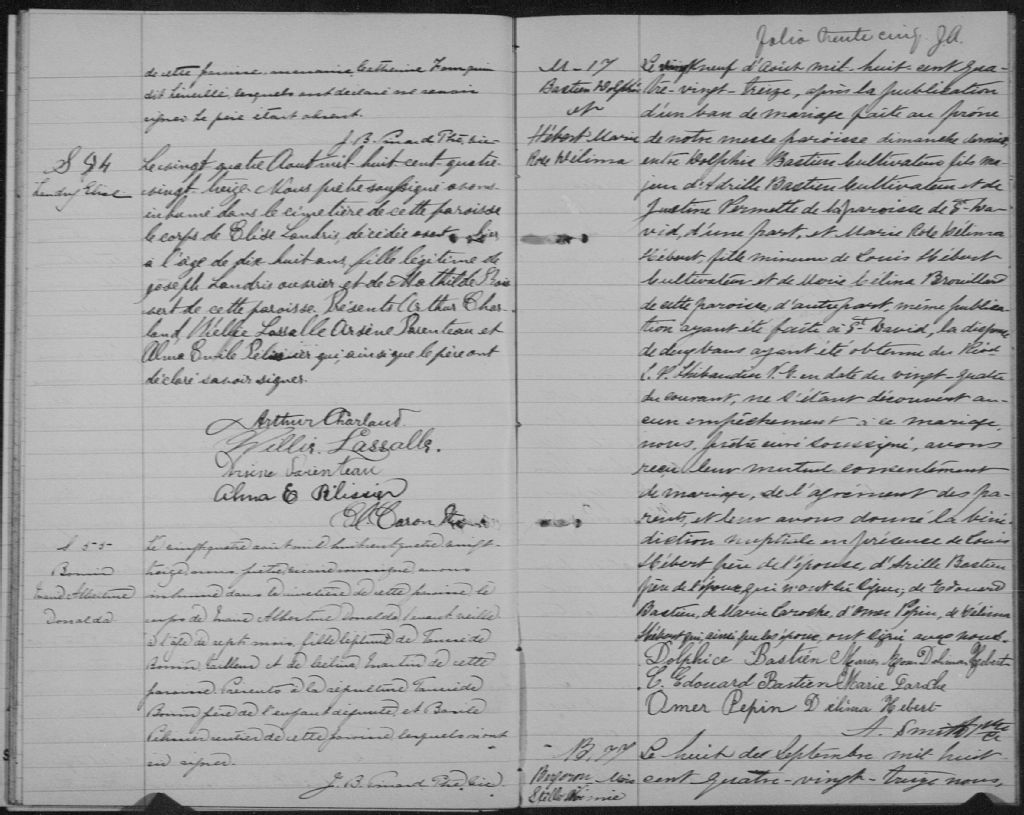 de cette paroisse menuisier, Catherine
dit Léveillé, lesquels ont déclaré ne savoir
signer. Le père étant absent.
J. B. Ptre, Vic
S 54
Landry Elise
Le vingt quatre Aout mil huit cent quatre
vingt treize Nous prêtre soussigné avons
inhumé dans le cimetière de cette paroisse
le corps de Elise Landris, décédée hier
à l'age de dix huit ans, fille légitime de
Joseph Landris ouvrier et de Mathilde Bois
vert de cette paroisse. Présents Arthur Char-
land, Willie Lassalle Arsène Parenteau et
Alma Emile Pélissier qui, ainsi que le père ont
déclaré savoir signer.
Arthur Charland
Willie Lassalle.
Parenteau
Alma E Pélissier
Caron
S 55
Bonin
Albertine
Donalda
Le vingt quatre aout mil huit cent quatre vingt
treize nous prêtre, vicaire soussigné avons
inhumé dans le cimetière de cette paroisse le
corps de Albertine Donalda avant veille
à l'âge de sept mois, fille légitime de
Bonin tailleur et de Martin de cette
paroisse. Présents à la sépulture
Bonin père de l'enfant défunte, et Basile
rentier de cette paroisse lesquels n'ont
su signer.
J. B. Ptre, Vic
folio trente cinq J.A.
M-17
Bastien Dolphis
et
Hébert Marie
Rose Délima
Le vingt neuf d'Aout mil-huit-cent qua-
tre-vingt-treize, après la publication
d'un ban de mariage faite au prône
de notre messe paroisse dimanche dernier
entre Dolphis Bastien Cultivateur fils ma-
jeur d'Adville Bastien Cultivateur et de
Justine Vermette de la paroisse de St Da-
vid, d'une part, et Marie Rose Délima
Hébert, fille mineure de Louis Hébert
Cultivateur et de Marie Célina Brouillard
de cette paroisse, d'autre part, même publica-
tion ayant été faite à St. David, la dispense
de deux bans ayant été obtenue du
Thibaudier V. G. en date du vingt-quatre
du courant, ne s'étant découvert au-
cun empêchement à ce mariage,
nous, prêtre curé soussigné, avons
reçu leur mutuel consentement
de mariage, de l'agrément des pa-
rents, et leur avons donné la béné-
diction nuptiale en présence de Louis
Hébert père de l'épouse, d'Adville Bastien
père de l'époux qui n'ont su signer, de Edouard
Bastien, de Marie Laroche, d'Omer Pépin, de Délima
Hébert qui, ainsi que les époux, ont signé avec nous.
Dolphice Bastien Délima Hebert
C. Edouard Bastien Marie Laroche
Omer Pepin Délima Hebert
A. Smith
B. 77
Bergeron Marie
Stella
Le huit des Septembre mil huit
cent quatre-vingt-treize nous,